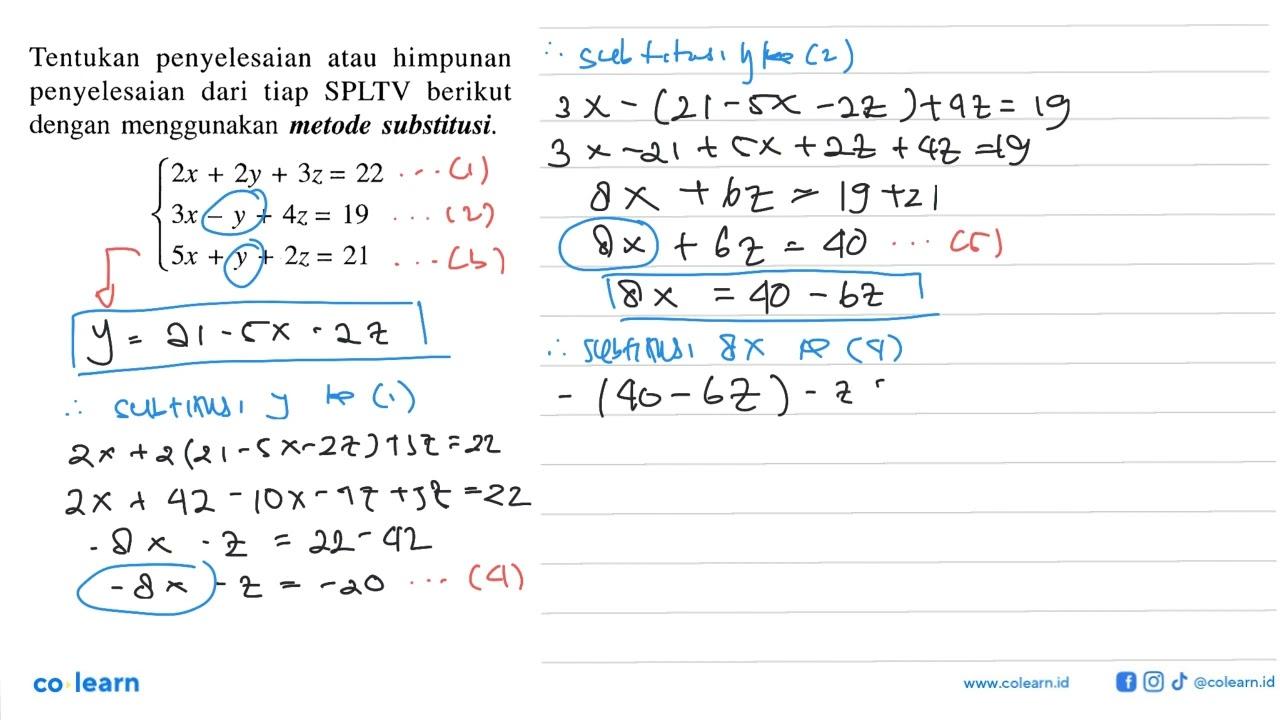 Tentukan penyelesaian atau himpunan
penyelesaian dari tiap SPLTV berikut
dengan menggunakan metode substitusi.
2x + 2y + 3z = 22 ... (1)
3x - y + 4z = 19 ... (2)
5x + y + 2z = 21 ... (3)
y = 21 - 5x - 2z
∴ subtitusi y ke (1)
2x + 2(21 - 5x - 2z) + 3z = 22
2x + 42 - 10x - 4z + 3z = 22
-8x - z = 22 - 42
-8x - z = -20 ... (4)
∴ subtitusi y ke (2)
3x - (21 - 5x - 2z) + 4z = 19
3x - 21 + 5x + 2z + 4z = 19
8x + 6z = 19 + 21
8x + 6z = 40 ... (5)
8x = 40 - 6z
∴ subtitusi 8x ke (4)
- (40 - 6z) - z =
co learn
www.colearn.id
@colearn.id